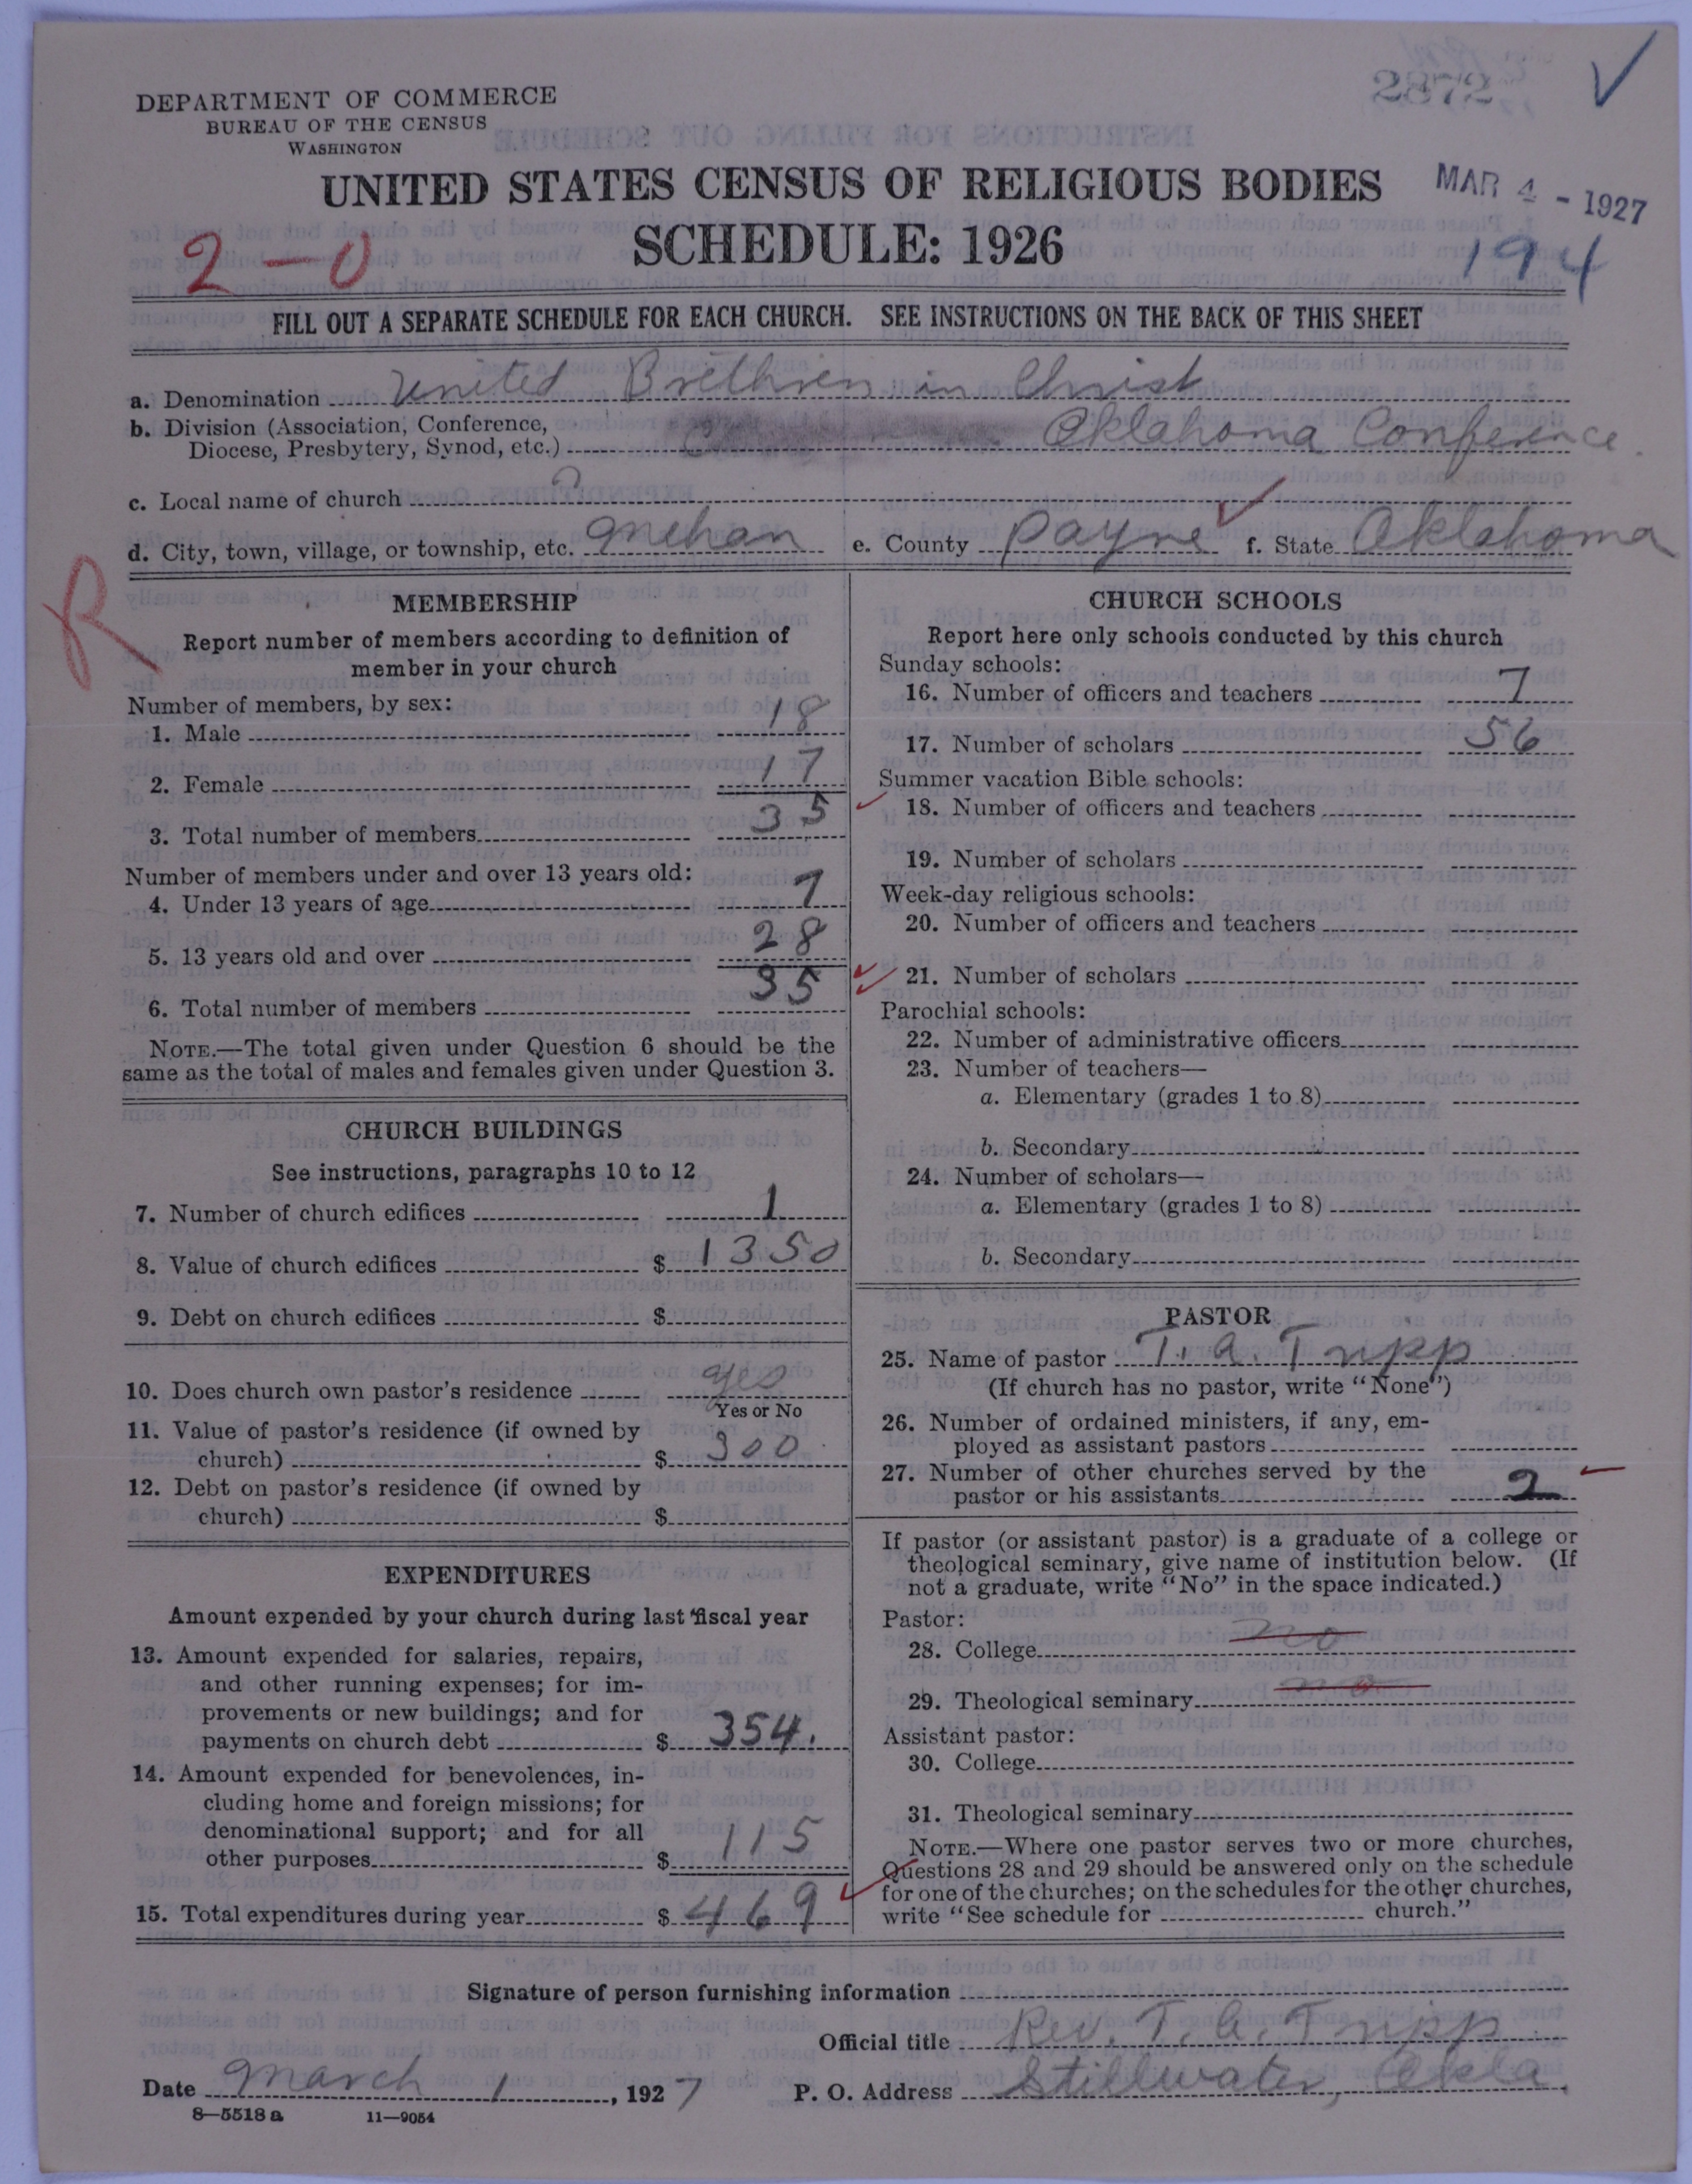 2872
DEPARTMENT OF COMMERCE
BUREAU OF THE CENSUS
WASHINGTON
UNITED STATES CENSUS OF RELIGIOUS BODIES
MAR 4 - 1927
SCHEDULE: 1926
2-0
194
FILL OUT A SEPARATE SCHEDULE FOR EACH CHURCH. SEE INSTRUCTIONS ON THE BACK OF THIS SHEET
a. Denomination United Brethren in Christ
b. Division (Association, Conference,
Diocese, Presbytery, Synod, etc.) Oklahoma Conference
c. Local name of church
d. City, town, village, or township, etc. Mehan e. County Payne f. State Oklahoma
R
MEMBERSHIP
Report number of members according to definition of
member in your church
Number of members, by sex:
1. Male 18
2. Female 17
3. Total number of members 35
Number of members under and over 13 years old:
4. Under 13 years of age 7
5. 13 years old and over 28
6. Total number of members 35
NOTE.—The total given under Question 6 should be the
same as the total of males and females given under Question 3.
CHURCH BUILDINGS
See instructions, paragraphs 10 to 12
7. Number of church edifices 1
8. Value of church edifices $ 1350
9. Debt on church edifices $
10. Does church own pastor's residence yes
Yes or No
11. Value of pastor's residence (if owned by
church) $ 300
12. Debt on pastor's residence (if owned by
church) $
EXPENDITURES
Amount expended by your church during last fiscal year
13. Amount expended for salaries, repairs,
and other running expenses; for im-
provements or new buildings; and for
payments on church debt $ 354.
14. Amount expended for benevolences, in-
cluding home and foreign missions; for
denominational support; and for all
other purposes $ 115
15. Total expenditures during year $ 469
CHURCH SCHOOLS
Report here only schools conducted by this church
Sunday schools:
16. Number of officers and teachers 7
17. Number of scholars 56
Summer vacation Bible schools:
18. Number of officers and teachers
19. Number of scholars
Week-day religious schools:
20. Number of officers and teachers
21. Number of scholars
Parochial schools:
22. Number of administrative officers
23. Number of teachers—
a. Elementary (grades 1 to 8)
b. Secondary
24. Number of scholars—
a. Elementary (grades 1 to 8)
b. Secondary
PASTOR
25. Name of pastor T. A. Tripp
(If church has no pastor, write "None")
26. Number of ordained ministers, if any, em-
ployed as assistant pastors
27. Number of other churches served by the
pastor or his assistants 2
If pastor (or assistant pastor) is a graduate of a college or
theological seminary, give name of institution below. (If
not a graduate, write "No" in the space indicated.)
Pastor:
28. College no
29. Theological seminary no
Assistant pastor:
30. College
31. Theological seminary
NOTE.—Where one pastor serves two or more churches,
Questions 28 and 29 should be answered only on the schedule
for one of the churches; on the schedules for the other churches,
write "See schedule for church."
Signature of person furnishing information
Official title Rev. T. A. Tripp
Date March 1, 1927 P. O. Address Stillwater, Okla.
8—5518a 11—9054